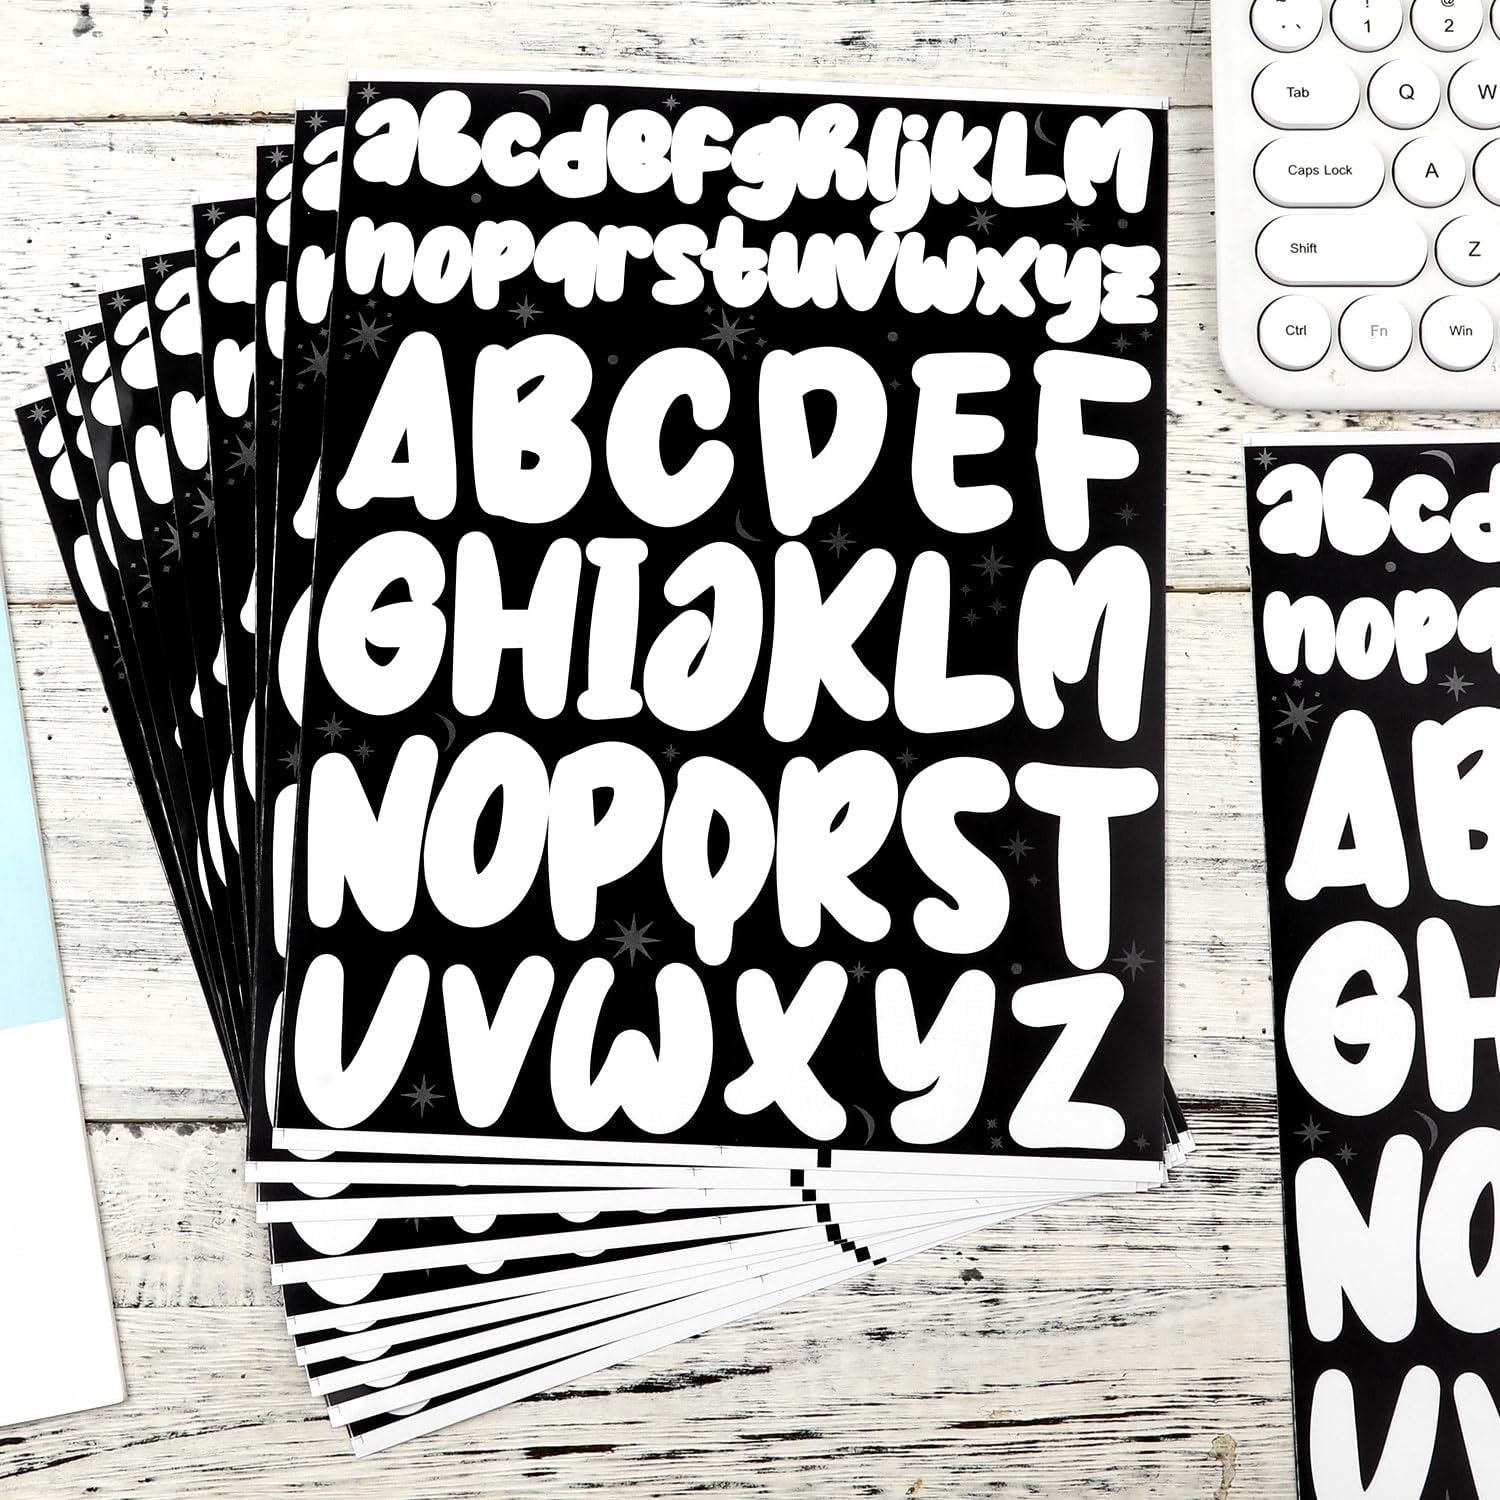 abcdefghijkLM
nopqrstuvwxyz
ABCDEF
GHIJKLM
NOPQRST
UVWXYZ
~ ! @
` 1 2
Tab Q W
Caps Lock A
Shift Z
Ctrl Fn Win
abcd
nopq
AB
GH
NO
UV